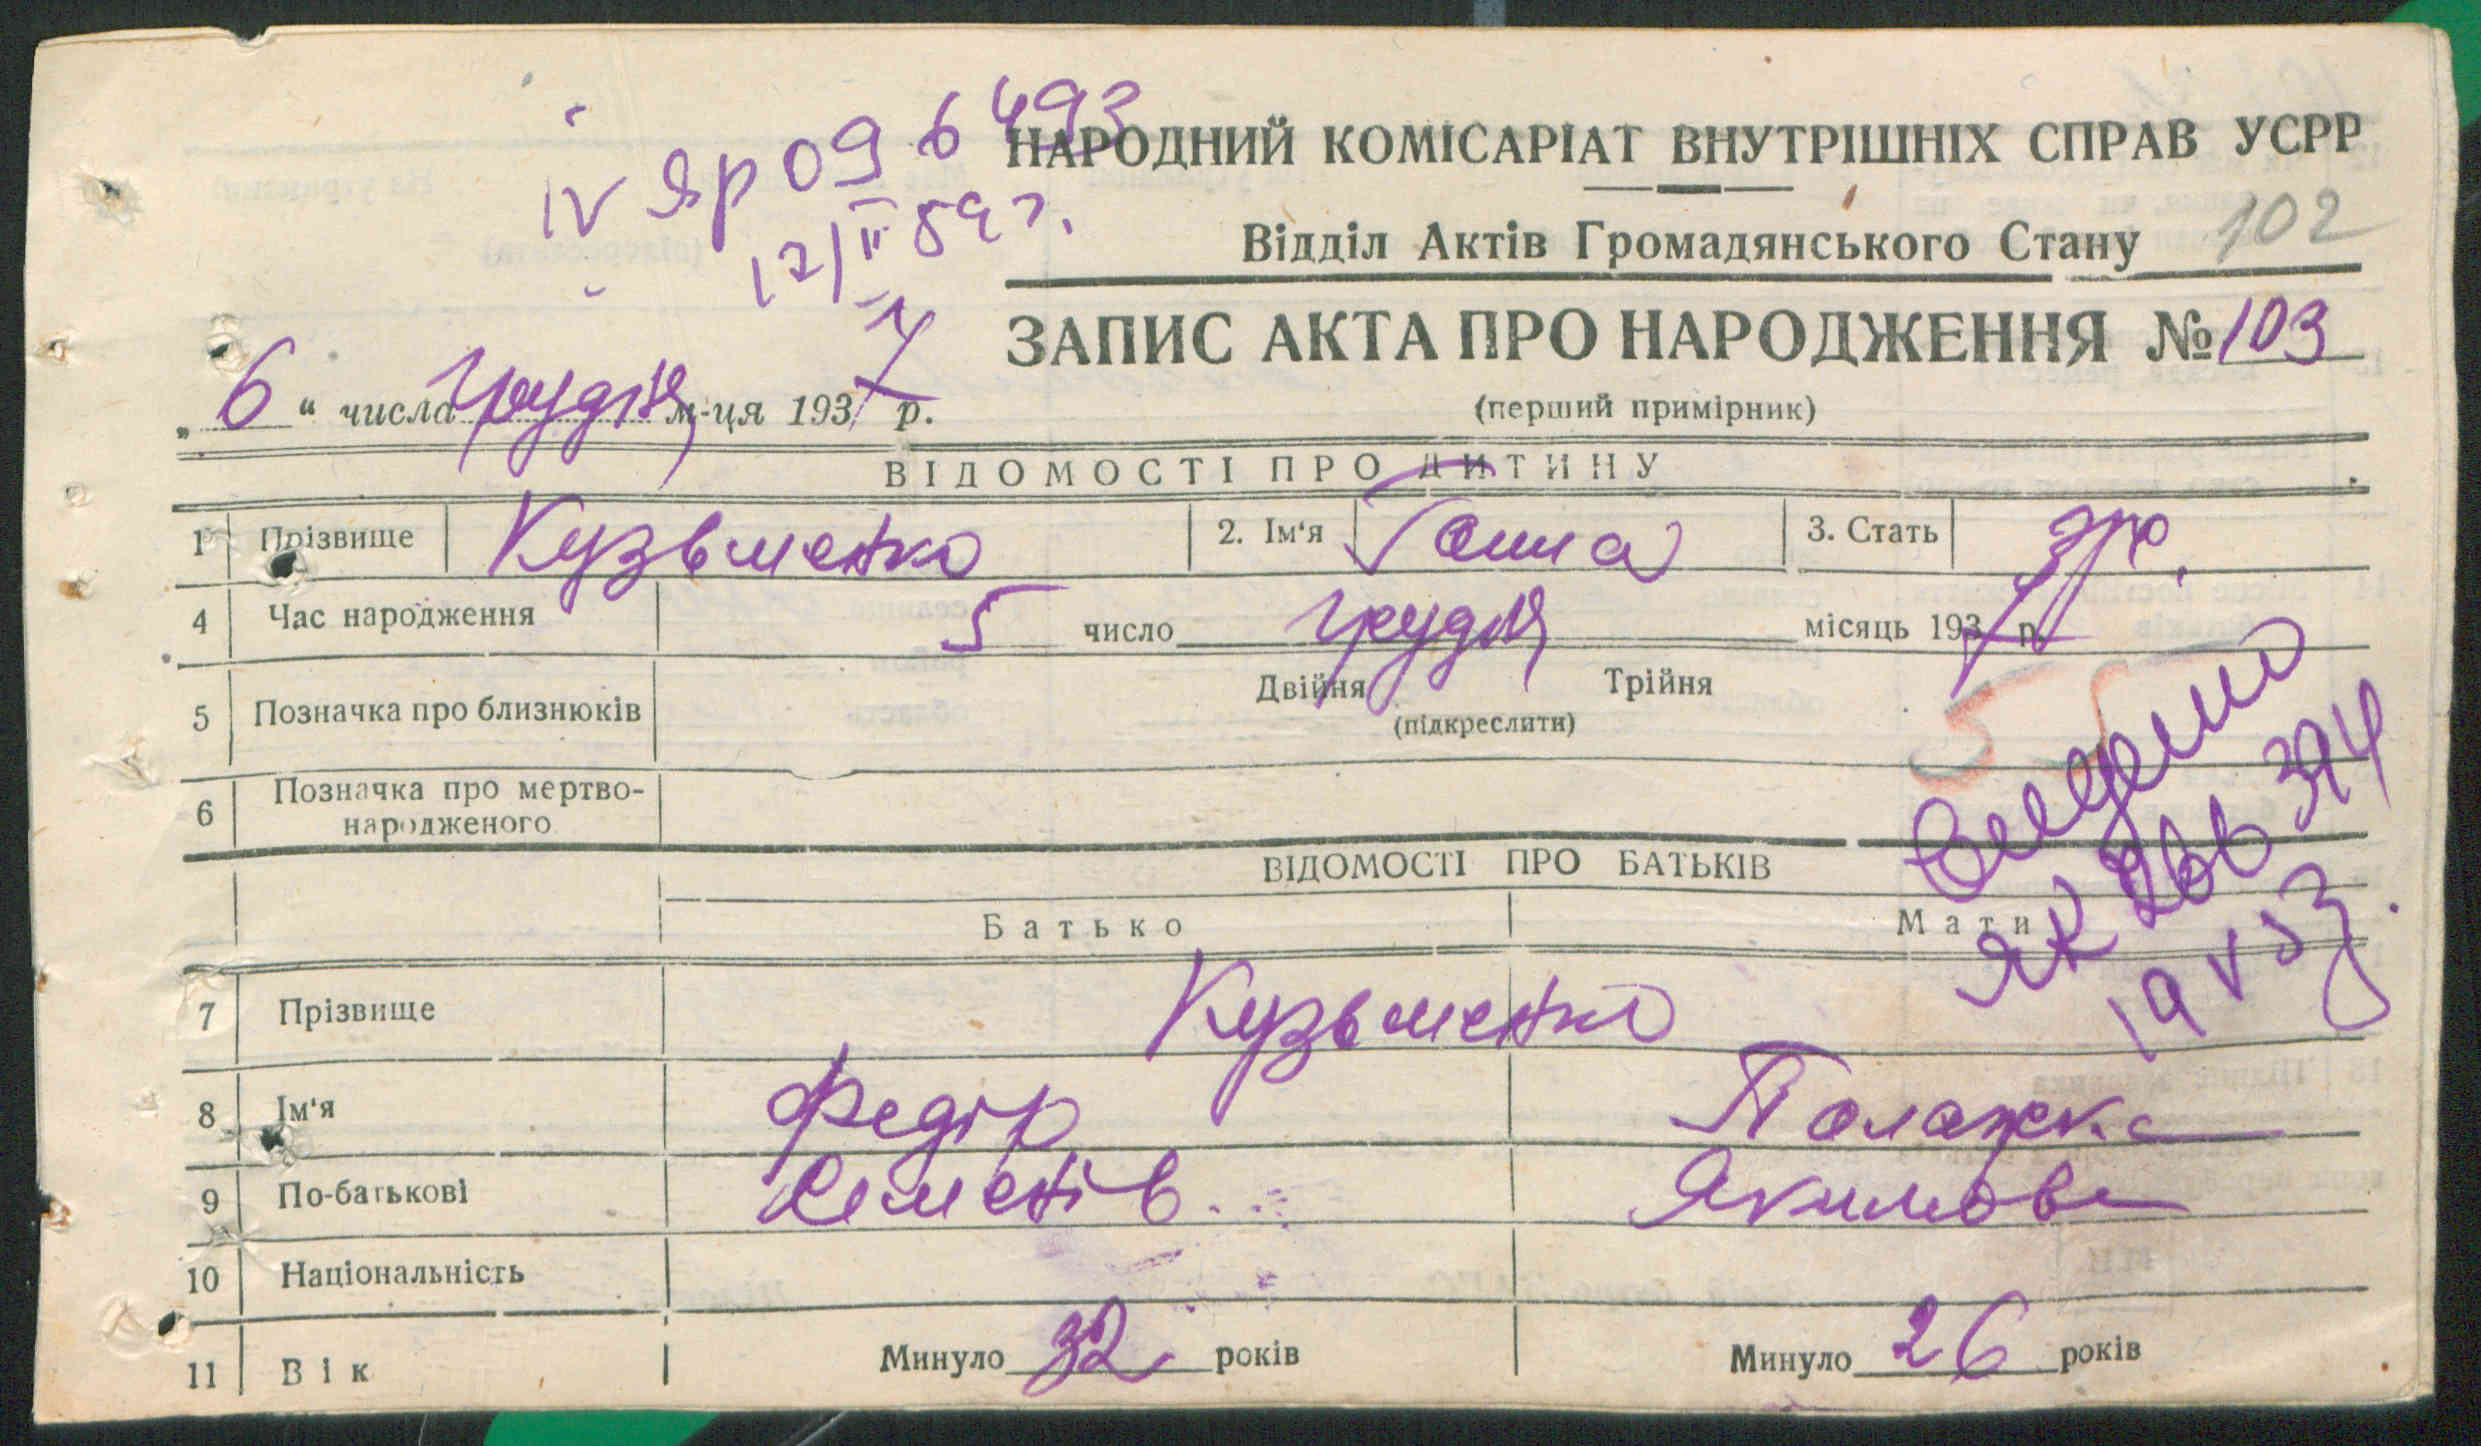 IV ЯР 096493
12/II 59 г.
НАРОДНИЙ КОМІСАРІАТ ВНУТРІШНІХ СПРАВ УСРР
Відділ Актів Громадянського Стану 102
ЗАПИС АКТА ПРО НАРОДЖЕННЯ № 103
(перший примірник)
„ 6 “ числа грудня м-ця 1937 р.
ВІДОМОСТІ ПРО ДИТИНУ
1 Прізвище Кузьменко 2. Ім'я Ганна 3. Стать жр.
4 Час народження 5 число грудня місяць 1937 р.
5 Позначка про близнюків Двійня Трійня
(підкреслити)
6 Позначка про мертво-
народженого
ВІДОМОСТІ ПРО БАТЬКІВ
Батько Мати
ЯК 266 394
19 V 53
7 Прізвище Кузьменко
8 Ім'я Федір Палажка
9 По-батькові Семенів Якимовна
10 Національність
11 Вік Минуло 32 років Минуло 26 років